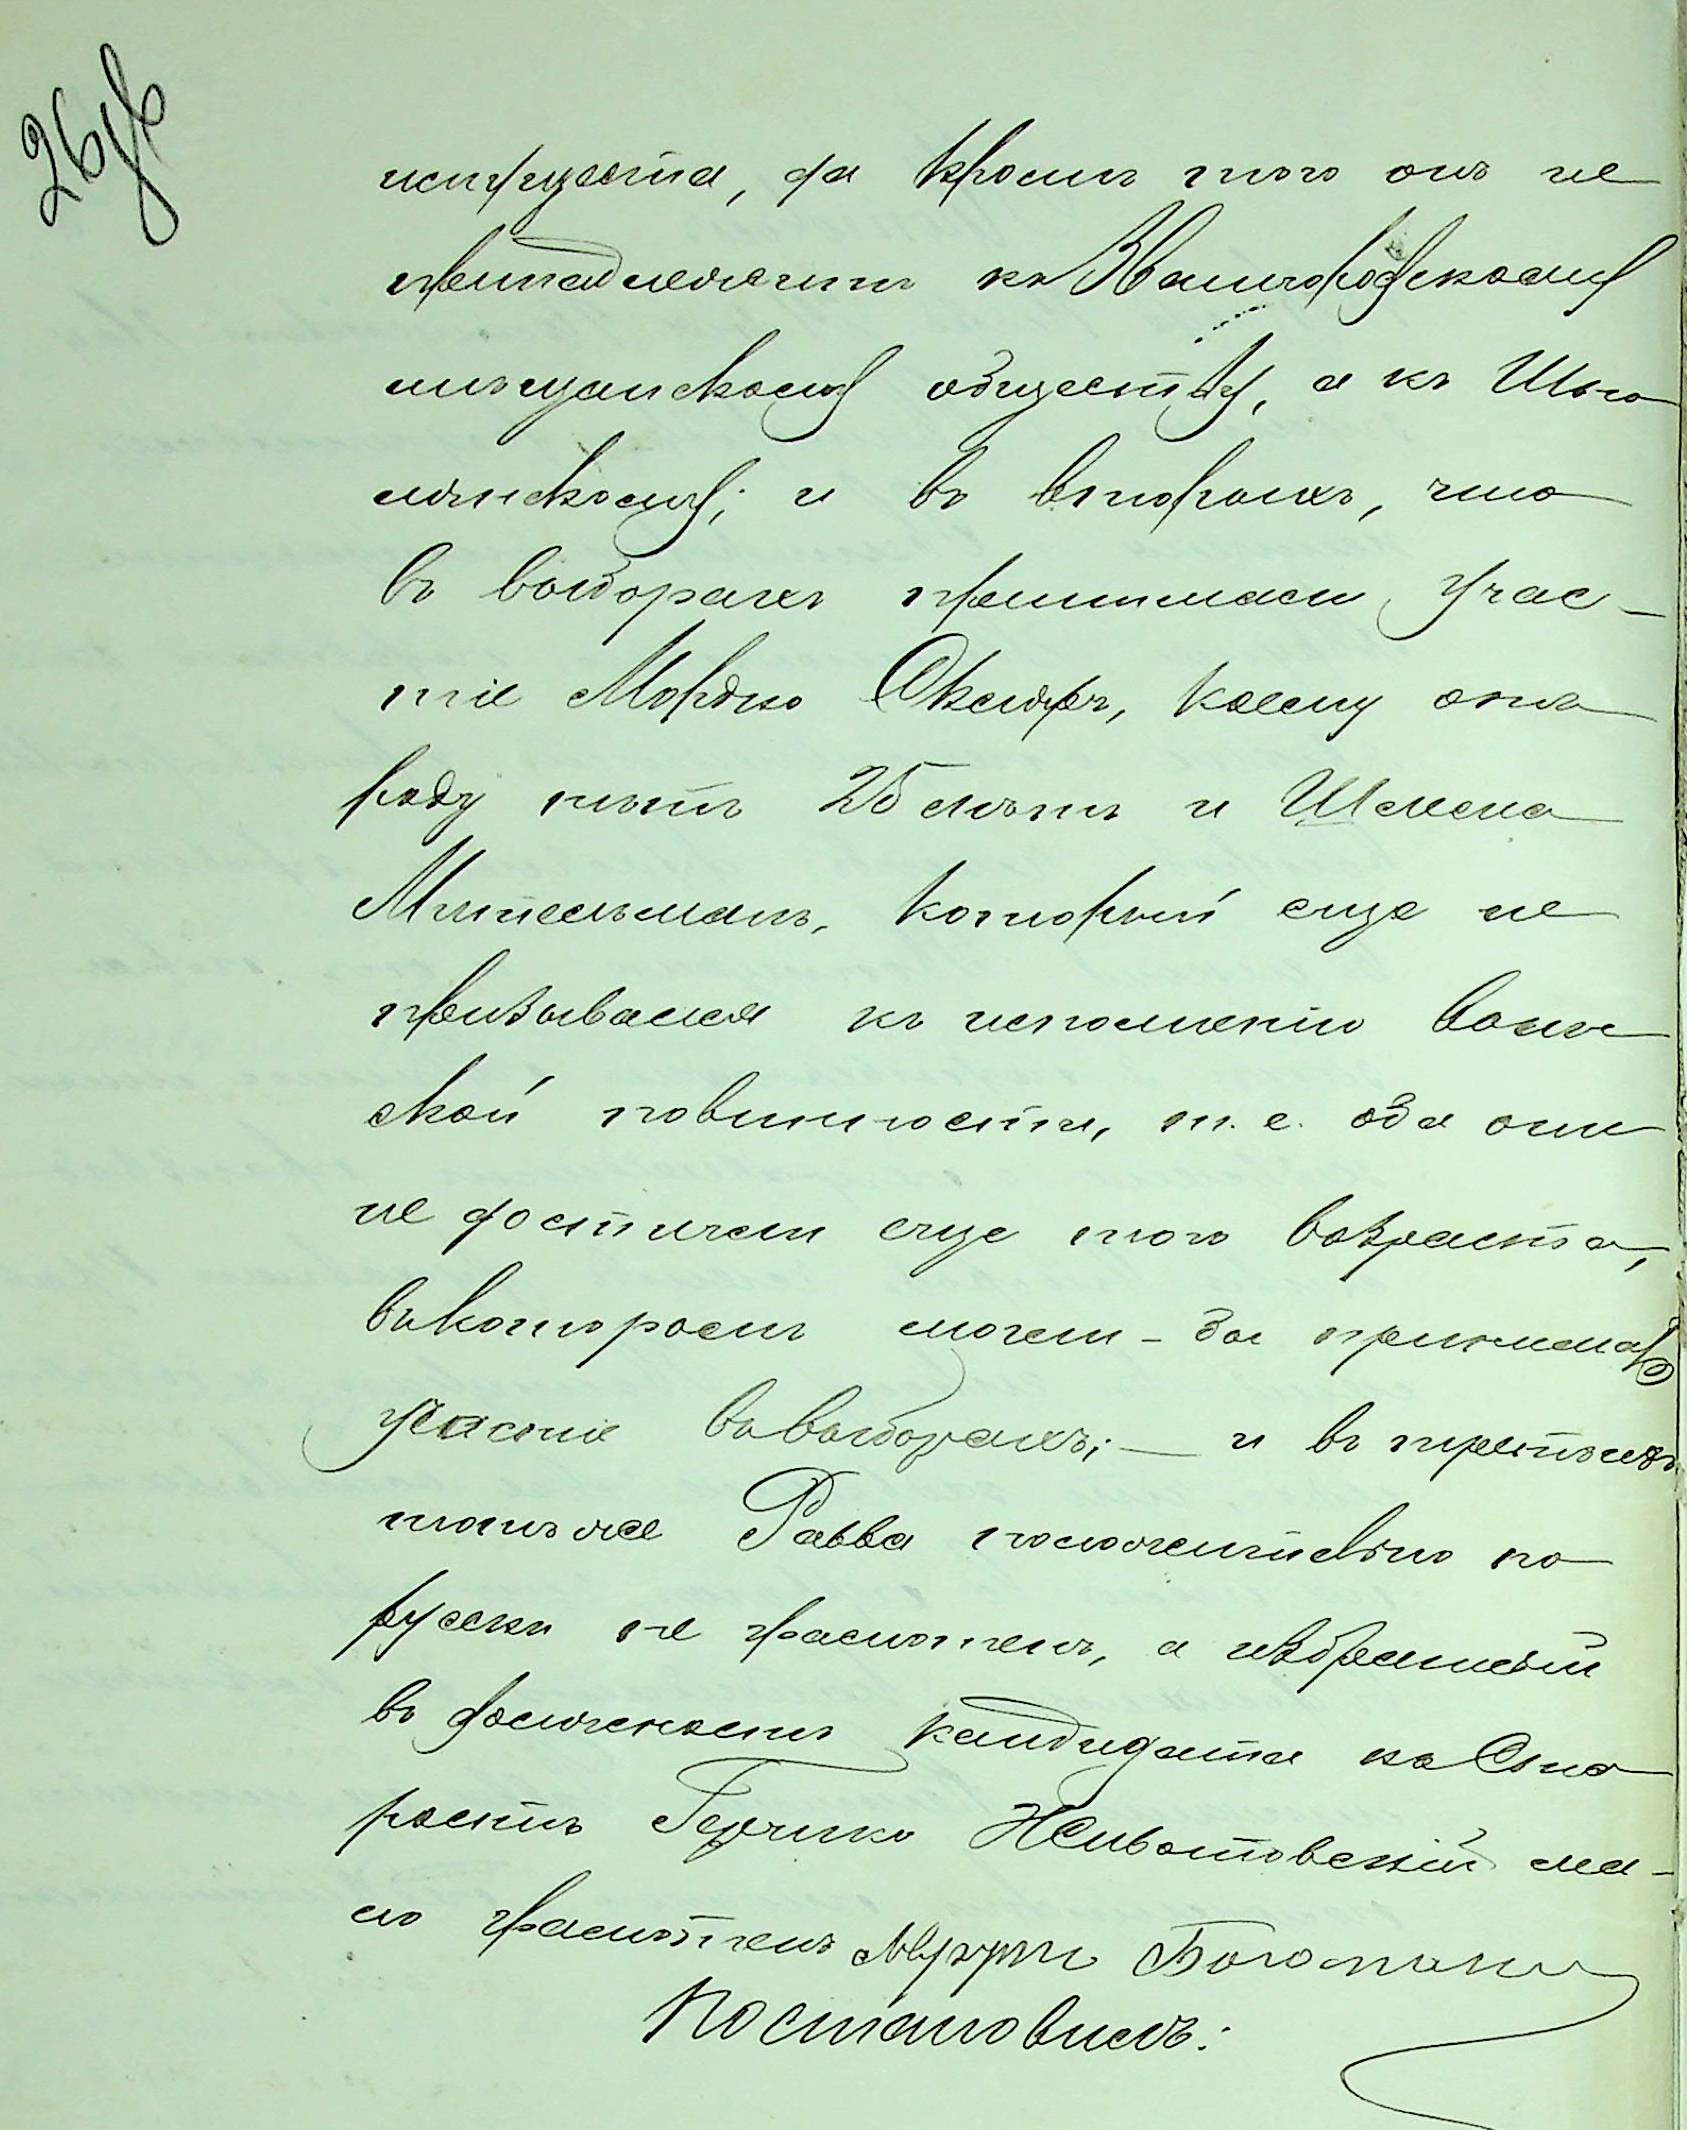 26 об
имущества, да кромъ того онъ не
принадлежитъ къ Звенигородскому
мѣщанскому обществу, а къ Шпо
лянскому; и въ вторыхъ, что
въ выборахъ принимали учас-
тіе Мордко Окснеръ, коему отъ
роду нѣтъ 25 лѣтъ и Шлема
Мительманъ, который еще не
призывался къ исполненію воин
ской повинности, т. е. оба они
не достигли еще того возраста,
въ которомъ могли-бы принимать
участіе въ выборахъ; — и въ третьихъ
тотъ же Равва положительно по
русски не грамотенъ, а избранный
въ должность кандидата къ Ста
ростѣ Гершко Животовскій ма-
ло грамотенъ Богомолни
Постановилъ: